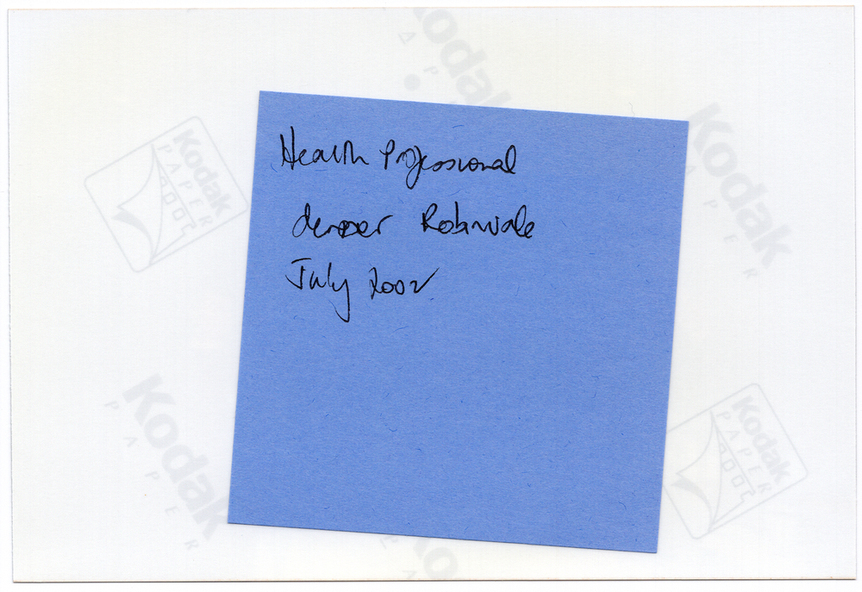 Kodak
PAPER
Kodak
PAPER
Kodak
PAPER
Health Professional
Robinvale
July 2002
Kodak
PAPER
Kodak
PAPER